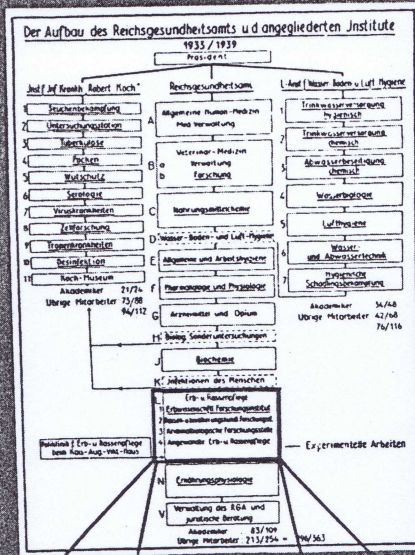 Der Aufbau des Reichsgesundheitsamts u d angegliederten Jnstitute
1933 / 1939
Präsident
Jnst f Jnf Krankh Robert Koch"
1 Seuchenbekämpfung
2 Untersuchungsstation
3 Tuberkulose
4 Pocken
5 Wutschutz
6 Serologie
7 Viruskrankheiten
8 Zellforschung
9 Tropenkrankheiten
10 Desinfektion
11 Koch-Museum
Akademiker 21/24
Übrige Mitarbeiter 73/88
94/112
Reichsgesundheitsamt
A Allgemeine Human-Medizin
Med Verwaltung
B Veterinär-Medizin
a Verwaltung
b Forschung
C Nahrungsmittelchemie
D Wasser- Boden- und Luft-Hygiene
E Allgemeine und Arbeitshygiene
F Pharmakologie und Physiologie
G Arzneimittel und Opium
H Biolog Sonderuntersuchungen
J Biochemie
K Infektionen des Menschen
L Erb- u Rassenpflege
1 Erbwissenschaftl Forschungsinstitut
2 Rassen- u bevölkerungskundl Forschungsst.
3 Kriminalbiologische Forschungsstelle
4 Angewandte Erb- u Rassenpflege
Poliklinik f Erb- u Rassenpflege
beim Kais.-Aug.-Vikt.-Haus
Experimentelle Arbeiten
N Ernährungsphysiologie
V Verwaltung des RGA und
juristische Beratung
Akademiker 83/109
Übrige Mitarbeiter 213/254 = 296/363
L-Anst f Wasser Boden u Luft Hygiene
1 Trinkwasserversorgung
hygienisch
2 Trinkwasserversorgung
chemisch
3 Abwasserbeseitigung
chemisch
4 Wasserbiologie
5 Lufthygiene
6 Wasser-
und Abwassertechnik
7 Hygienische
Schädlingsbekämpfung
Akademiker 34/48
Übrige Mitarbeiter 42/68
76/116